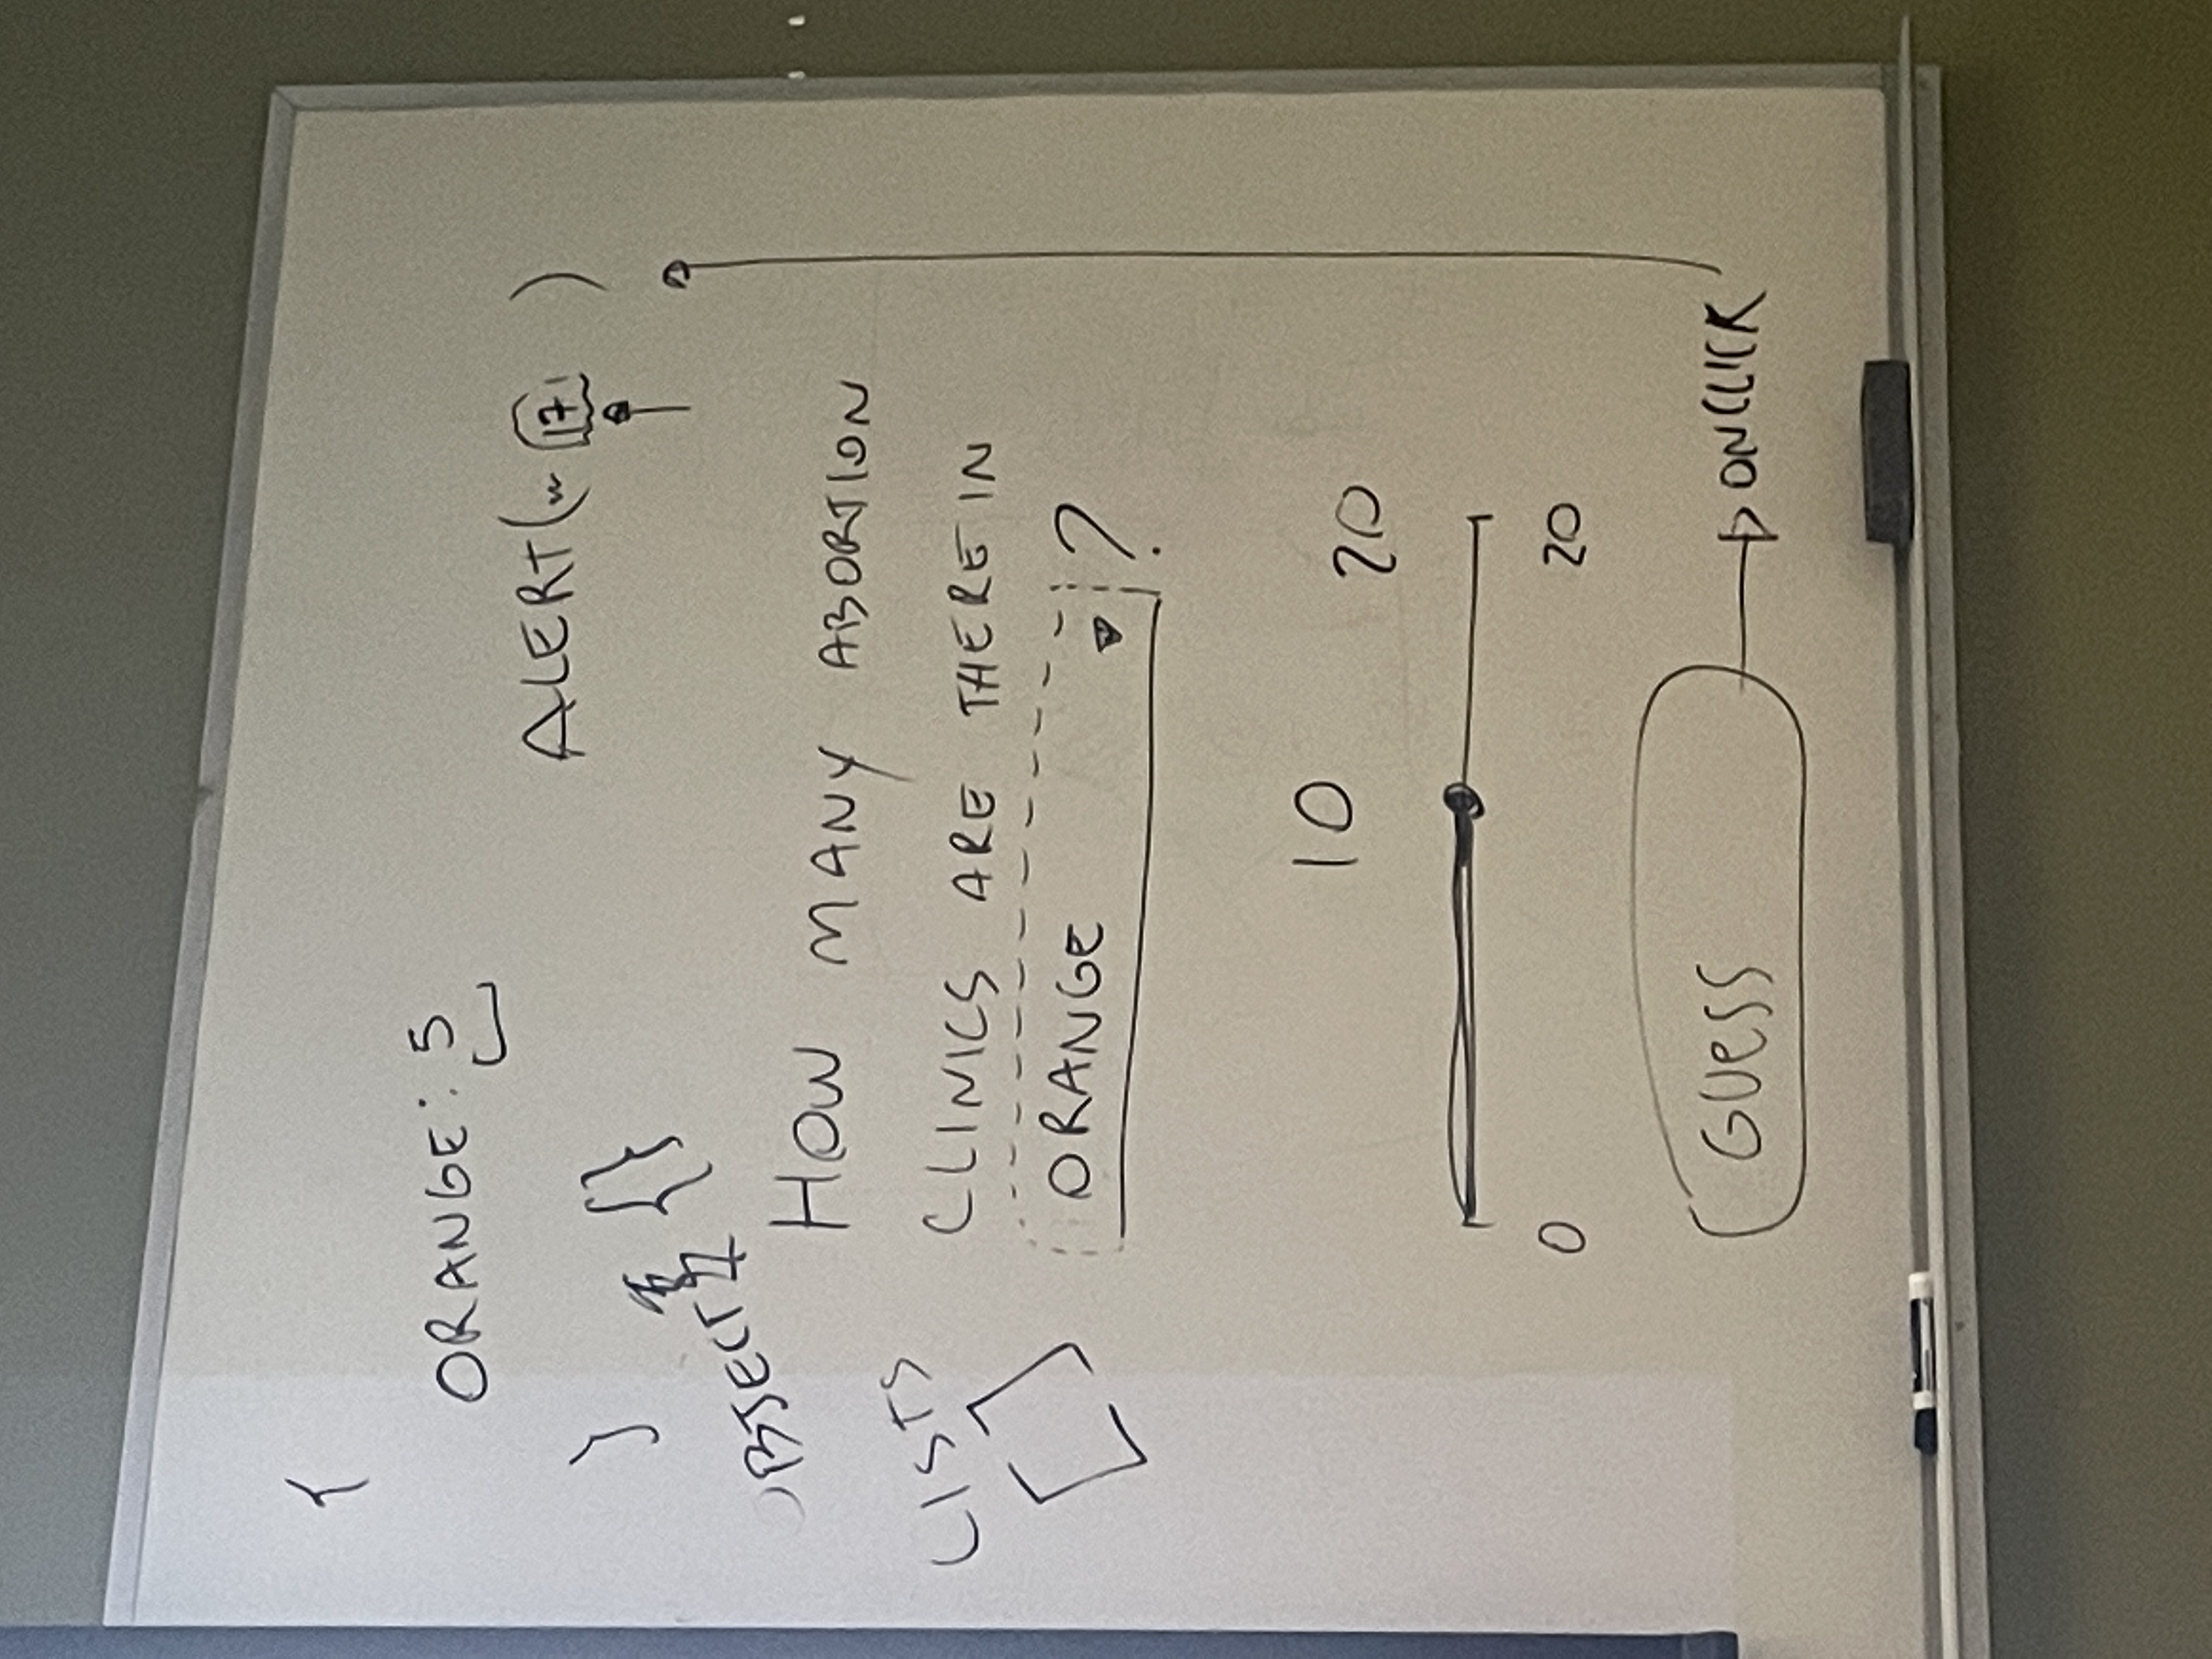 {
ORANGE: 5
}
ALERT(" 17 )
OBJECT {}
HOW MANY ABORTION
CLINICS ARE THERE IN
ORANGE ?
LISTS
[]
10
20
0
20
GUESS
ONCLICK